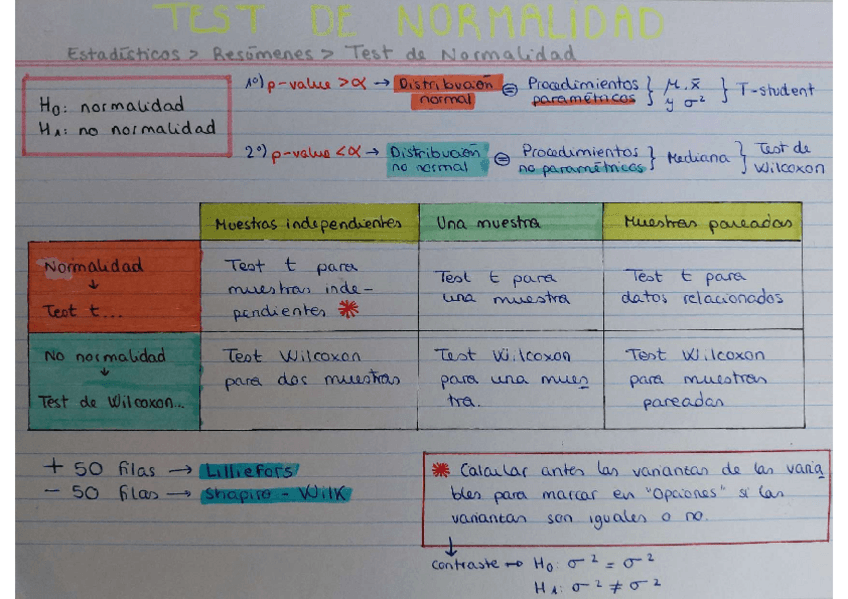 TEST DE NORMALIDAD
Estadísticos > Resúmenes > Test de Normalidad
H0: normalidad
HA: no normalidad
1º) p-value > α → Distribución normal = Procedimientos paramétricos } μ, x̄ y σ² } T-student
2º) p-value < α → Distribución no normal = Procedimientos no paramétricos } Mediana } Test de Wilcoxon
Muestras independientes
Una muestra
Muestras pareadas
Normalidad
↓
Test t...
Test t para
muestras inde-
pendientes *
Test t para
una muestra
Test t para
datos relacionados
No normalidad
↓
Test de Wilcoxon...
Test Wilcoxon
para dos muestras
Test Wilcoxon
para una mues
tra.
Test Wilcoxon
para muestras
pareadas
+ 50 filas → Lilliefors
- 50 filas → Shapiro - Wilk
* Calcular antes las varianzas de las varia
bles para marcar en "Opciones" si las
varianzas son iguales o no.
↓
contraste → H0: σ² = σ²
HA: σ² ≠ σ²